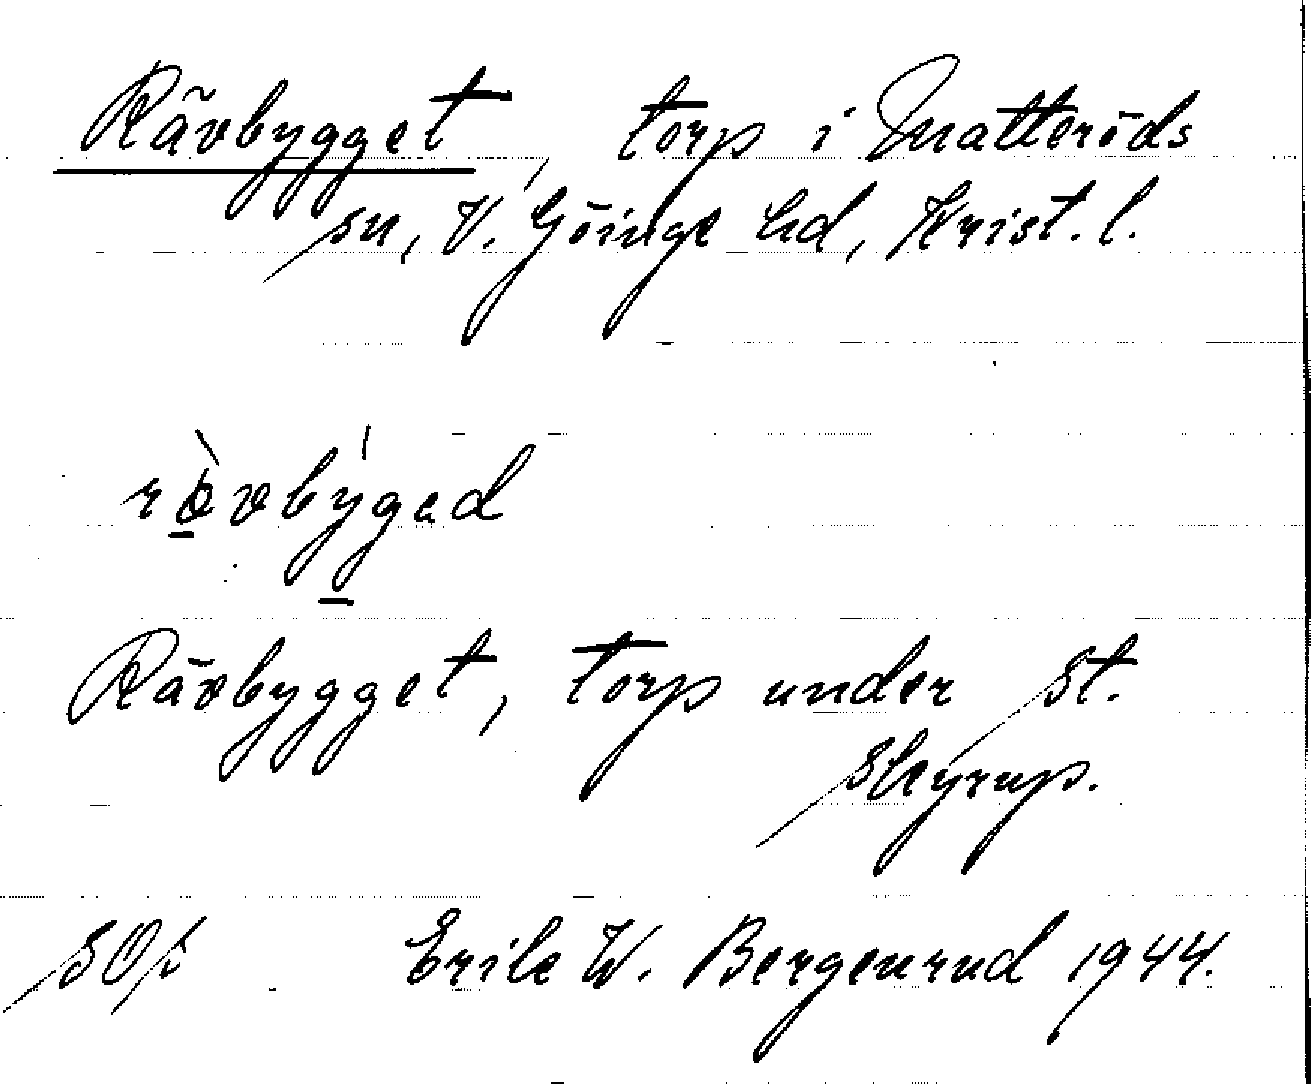 Rävbygget, torp i Matteröds
sn, V. Göinge hd, Krist. l.
Rävbygget, torp under St.
Skyrup.
Erik W. Bergenrud 1944.